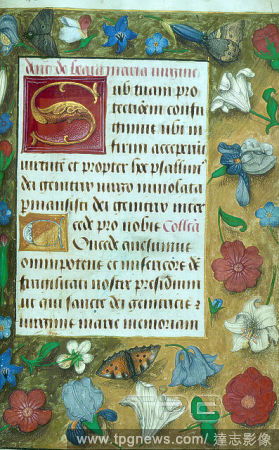 de beata maria virgine
Sub tuam pro
tectionem confu
gimus ubi in
firmi acceperũt
virtutem et propter hoc psallim'
dei genitrix virgo inviolata
permansisti dei genitrix inter
cede pro nobis Collecta
Concede quesumus
omnipotens et misericors de'
fragilitati nostre presidium
ut qui sancte dei genitricis z
virginis marie memoriam
www.tpgnews.com/ 達志影像